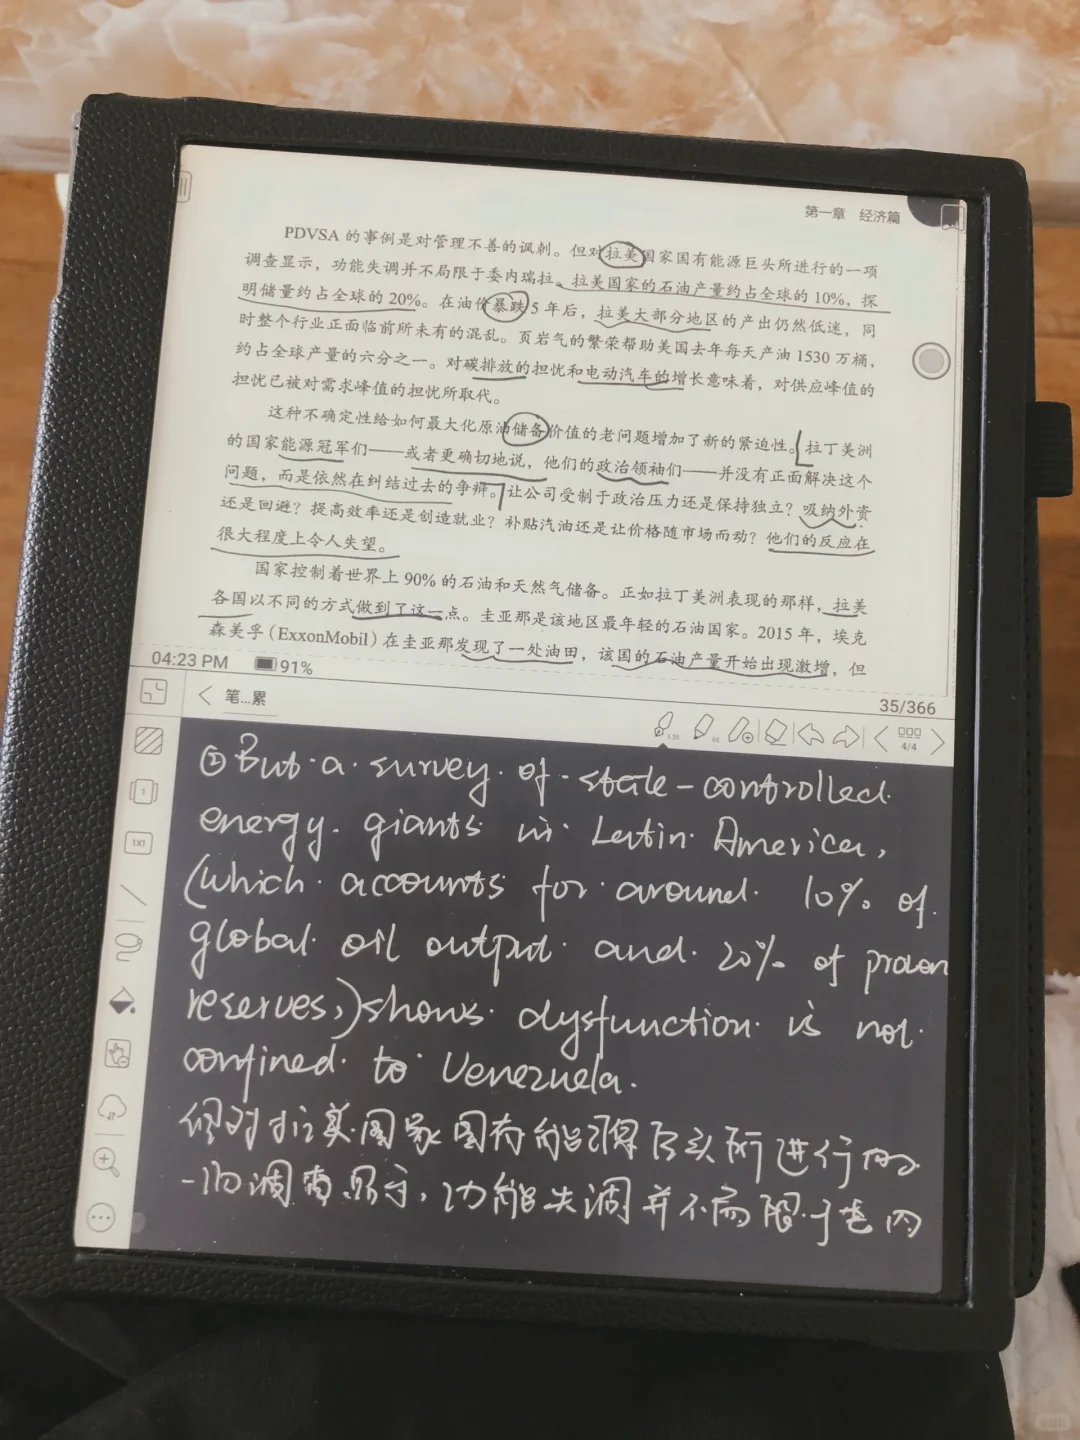 第一章 经济篇
PDVSA 的事例是对管理不善的讽刺。但对拉美国家国有能源巨头所进行的一项
调查显示，功能失调并不局限于委内瑞拉。拉美国家的石油产量约占全球的 10%，探
明储量约占全球的 20%。在油价暴跌 5 年后，拉美大部分地区的产出仍然低迷，同
时整个行业正面临前所未有的混乱。页岩气的繁荣帮助美国去年每天产油 1530 万桶，
约占全球产量的六分之一。对碳排放的担忧和电动汽车的增长意味着，对供应峰值的
担忧已被对需求峰值的担忧所取代。
这种不确定性给如何最大化原油储备价值的老问题增加了新的紧迫性。拉丁美洲
的国家能源冠军们——或者更确切地说，他们的政治领袖们——并没有正面解决这个
问题，而是依然在纠结过去的争辩。让公司受制于政治压力还是保持独立？吸纳外资
还是回避？提高效率还是创造就业？补贴汽油还是让价格随市场而动？他们的反应在
很大程度上令人失望。
国家控制着世界上 90% 的石油和天然气储备。正如拉丁美洲表现的那样，拉美
各国以不同的方式做到了这一点。圭亚那是该地区最年轻的石油国家。2015 年，埃克
森美孚（ExxonMobil）在圭亚那发现了一处油田，该国的石油产量开始出现激增，但
04:23 PM 91%
35/366
笔...累
4/4
②But a survey of state-controlled
energy giants in Latin America,
(which accounts for around 10% of
global oil output and 20% of proven
reserves,) shows dysfunction is not
confined to Venezuela.
但对拉美国家国有能源巨头所进行的
一项调查显示，功能失调并不局限于委内